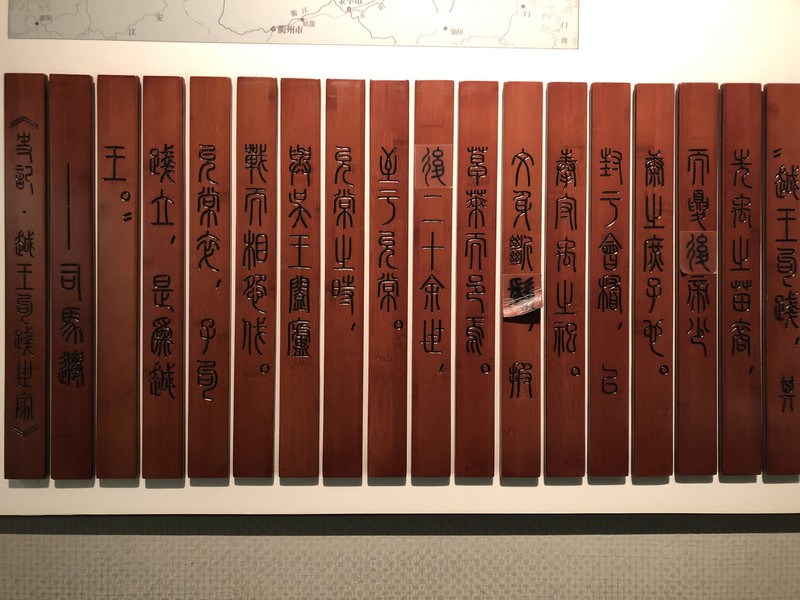 安
江
衢州市
仙居
“越王句踐，其
先禹之苗裔，
而夏後帝少
康之庶子也。
封于會稽，以
奉守禹之祀。
文身斷髮，披
草萊而邑焉。
後二十余世，
至于允常。
允常之時，
與吳王闔廬
戰而相怨伐。
允常卒，子句
踐立，是為越
王。”
——司馬遷
《史記·越王句踐世家》